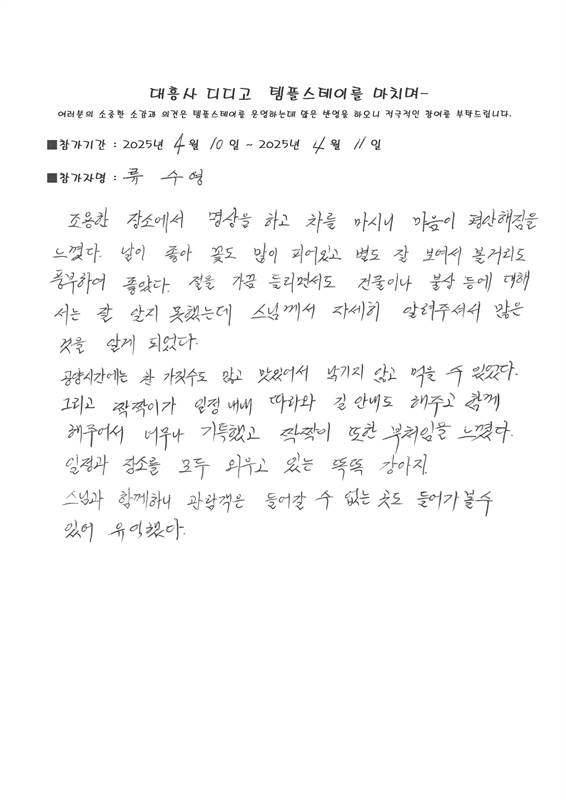 대흥사 디디고 템플스테이를 마치며-
여러분의 소중한 소감과 의견은 템플스테이를 운영하는데 많은 반영을 하오니 적극적인 참여를 부탁드립니다.
■참가기간 : 2025년 4월 10일 ~ 2025년 4월 11일
■참가자명 : 류수영
조용한 장소에서 명상을 하고 차를 마시니 마음이 편안해짐을
느꼈다. 날이 좋아 꽃도 많이 피어있고 별도 잘 보여서 볼거리도
풍부하여 좋았다. 절을 가끔 들리면서도 건물이나 불상 등에 대해
서는 잘 알지 못했는데 스님께서 자세히 알려주셔서 많은
것을 알게 되었다.
공양시간에는 찬 가짓수도 많고 맛있어서 남기지 않고 먹을 수 있었다.
그리고 짝짝이가 일정 내내 따라와 길 안내도 해주고 함께
해주어서 너무나 기특했고 짝짝이 또한 부처임을 느꼈다.
일정과 장소를 모두 외우고 있는 똑똑 강아지.
스님과 함께하니 관람객은 들어갈 수 없는 곳도 들어가 볼 수
있어 유익했다.